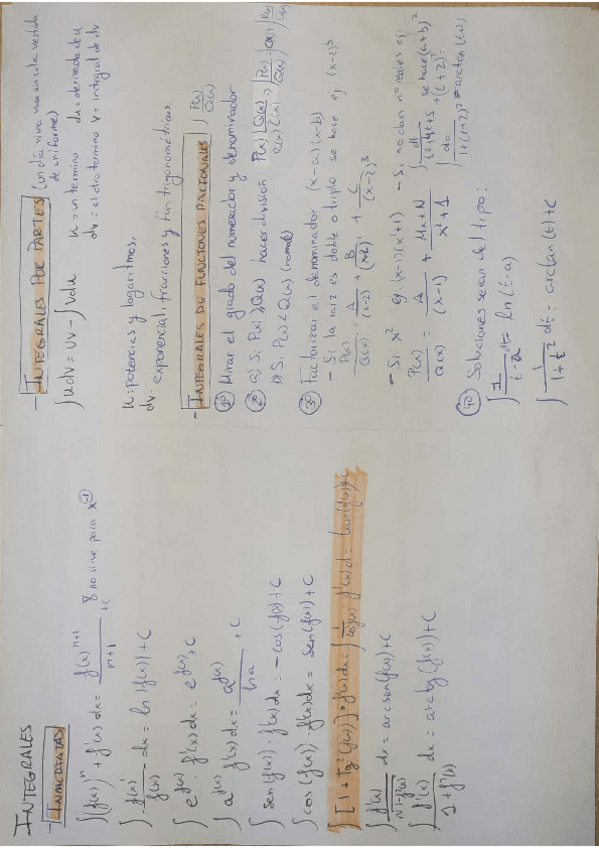 INTEGRALES
- INMEDIATAS
∫(f(x))ⁿ + f'(x) dx = f(x)ⁿ⁺¹/n+1 + C 8 no sirve para x⁻¹
∫ f(x)'/f(x) dx = ln |f(x)| + C
∫ e^f(x) · f'(x) dx = e^f(x) + C
∫ a^f(x) f'(x) dx = a^f(x)/ln a + C
∫ sen(f(x)) · f'(x) dx = -cos(f(x)) + C
∫ cos(f(x)) · f'(x) dx = sen(f(x)) + C
∫ [1 + tg²(f(x))] · f'(x) dx = ∫ 1/cos²f(x) · f'(x) d = tan(f(x)) + C
∫ f'(x)/√1-f²(x) dx = arcsen(f(x)) + C
∫ f'(x)/1+f²(x) dx = arctg(f(x)) + C
- INTEGRALES POR PARTES (un día vi una vaca sin cola vestida
de uniforme)
∫ u dv = uv - ∫ v du u = un termino du = derivada de u
dv = el otro termino v = integral de dv
u: potencias y logaritmos,
dv: exponencial, fracciones y fun. trigonométricas.
- INTEGRALES DE FUNCIONES RACIONALES ∫ P(x)/Q(x)
1º Mirar el grado del numerador y denominador
2º a) Si P(x) ≥ Q(x) hacer división P(x) |Q(x) R(x) C(x) ⇒ ∫ P(x)/Q(x) = ∫ C(x) + ∫ R(x)/Q(x)
b) Si P(x) < Q(x) (normal)
3º Factorizar el denominador (x-a)(x-b)
- Si la raiz es doble o triple se hace ej (x-2)³
P(x)/Q(x) = A/(x-2) + B/(x-2)² + C/(x-2)³
- Si x² ej: (x-1)(x²+1) - Si no dan nº reales ej
P(x)/Q(x) = A/(x-1) + Mx+N/x²+1 ∫ dt/t²+4t+5 se hace (a+b)²
1+(t+2)²
∫ dt/1+(t+2)² = arctan(t+2)
4º Soluciones seran del tipo:
∫ 1/t-a dt = ln(t-a)
∫ 1/1+t² dt = arctan(t) + C